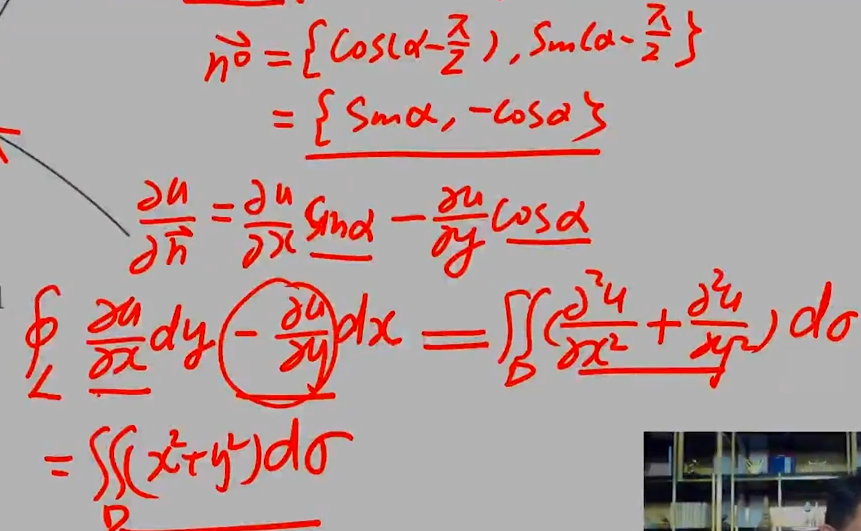 n⃗° = {cos(α-π/2), sin(α-π/2)}
= {sinα, -cosα}
∂u/∂n⃗ = ∂u/∂x sinα - ∂u/∂y cosα
∮_L ∂u/∂x dy - ∂u/∂y dx = ∬_D (∂²u/∂x² + ∂²u/∂y²) dσ
= ∬_D (x²+y²) dσ